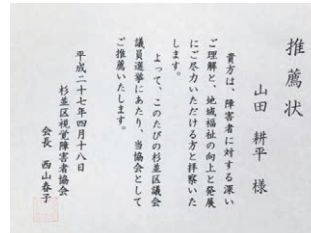 推薦状
山田 耕平 様
貴方は、障害者に対する深い
ご理解と、地域福祉の向上と発展
にご尽力いただける方と拝察いた
します。
よって、このたびの杉並区議会
議員選挙にあたり、当協会として
ご推薦いたします。
平成二十七年四月十八日
杉並区視覚障害者協会
会長 西山春子